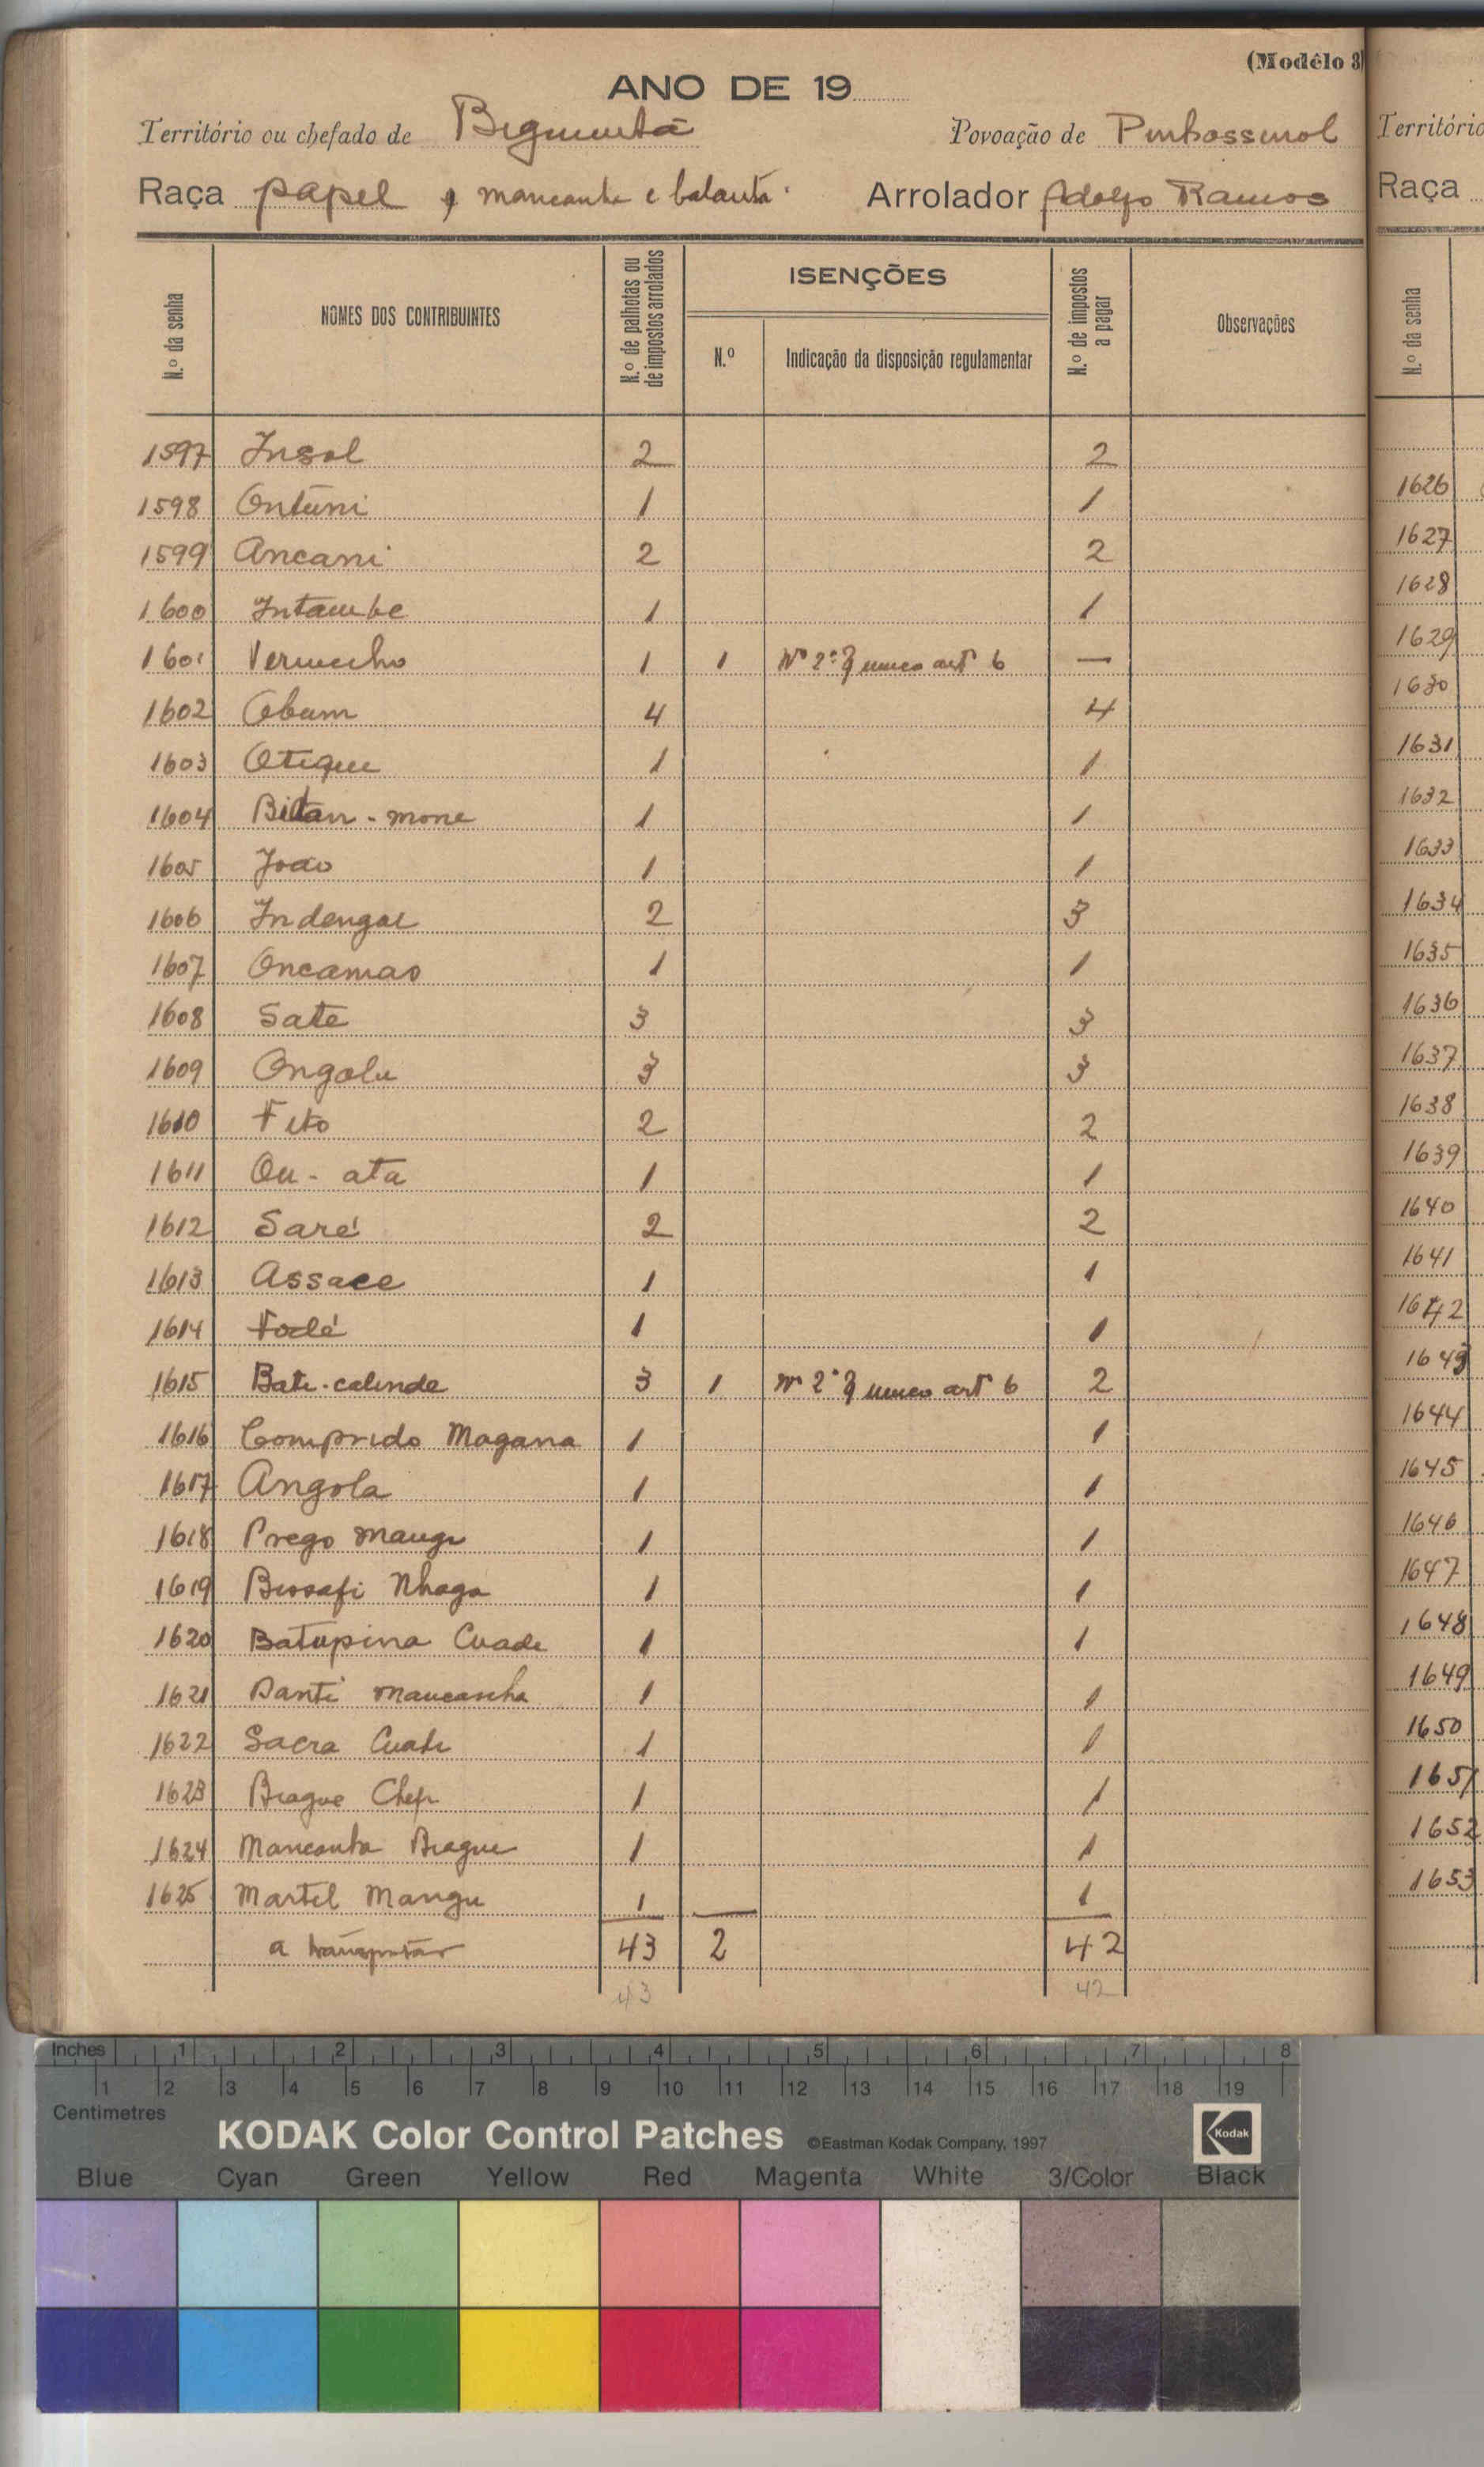 (Modêlo 3)
ANO DE 19
Território ou chefado de Bigimitá Povoação de
Raça papel e mancanha e balanta Arrolador Adolfo Ramos
N.º da senha
NOMES DOS CONTRIBUINTES
N.º de palhotas ou de impostos arrolados
ISENÇÕES
N.º
Indicação da disposição regulamentar
N.º de impostos a pagar
Observações
1597 Insol 2 2
1598 Ontuni 1 1
1599 Ancani 2 2
1600 Intambe 1 1
1601 Vermecho 1 1 Nº 2º § unico artº 6 —
1602 Obum 4 4
1603 Otique 1 1
1604 Bidan-mone 1 1
1605 João 1 1
1606 Indengar 2 3
1607 Oncamao 1 1
1608 Sate 3 3
1609 Ongolu 3 3
1610 Fito 2 2
1611 Ou-ata 1 1
1612 Saré 2 2
1613 Assace 1 1
1614 Fodé 1 1
1615 Bati-calinde 3 1 nº 2º § unico artº 6 2
1616 Comprido Magana 1 1
1617 Angola 1 1
1618 Prego Mangu 1 1
1619 Bissafi Nhaga 1 1
1620 Batupina Cuade 1 1
1621 Danti Mancanha 1 1
1622 Sacra Cuate 1 1
1623 Biague Chefe 1 1
1624 Mancanha Biague 1 1
1625 Martel Mangu 1 1
a transportar 43 2 42
43 42
Território
Raça
N.º da senha
1626
1627
1628
1629
1630
1631
1632
1633
1634
1635
1636
1637
1638
1639
1640
1641
1642
1643
1644
1645
1646
1647
1648
1649
1650
1651
1652
1653
Inches 1 2 3 4 5 6 7 8
1 2 3 4 5 6 7 8 9 10 11 12 13 14 15 16 17 18 19
Centimetres
KODAK Color Control Patches ©Eastman Kodak Company, 1997 Kodak
Blue Cyan Green Yellow Red Magenta White 3/Color Black